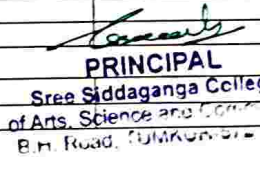 PRINCIPAL
Sree Siddaganga Colle
of Arts, Science and Com
B.H. Road, TUMKUR-572